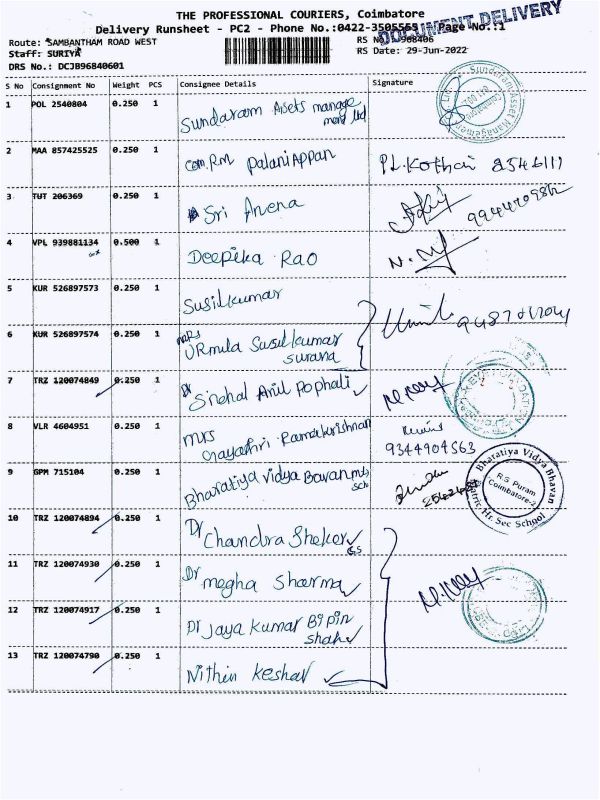 THE PROFESSIONAL COURIERS, Coimbatore
DOCUMENT DELIVERY
Delivery Runsheet - PC2 - Phone No.:0422-3505553 Page No.:1
Route: SAMBANTHAM ROAD WEST
RS No.: 968406
Staff: SURIYA
RS Date: 29-Jun-2022
DRS No.: DCJB96840601
S No Consignment No Weight PCS Consignee Details Signature
1 POL 2540804 0.250 1 Sundaram Assets manage
ment ltd
Sundaram Asset Management
2 MAA 857425525 0.250 1 com.R.m PalaniAppan PL.Kothai 2546111
3 TUT 206369 0.250 1 Sri Avena
4 VPL 939881134 0.500 1 Deepika Rao
5 KUR 526897573 0.250 1 Susilkumar
6 KUR 526897574 0.250 1 mrs
URmila Susilkumar
surana
7 TRZ 120074849 0.250 1 Dr Snehal Anil Pophali
8 VLR 4604951 0.250 1 mrs
Gayathri Ramakrishnan
9344904563
9 GPM 715104 0.250 1 Bharatiya Vidya Bavan
sch
Bharatiya Vidya Bhavan
R.S Puram
Coimbatore-2
Matric Hr. Sec School
10 TRZ 120074894 0.250 1 Dr Chandra Sheker
GS
11 TRZ 120074930 0.250 1 Dr megha Sharma
12 TRZ 120074917 0.250 1 Dr Jaya Kumar Bipin
shah
13 TRZ 120074790 0.250 1 Nithin Keshav